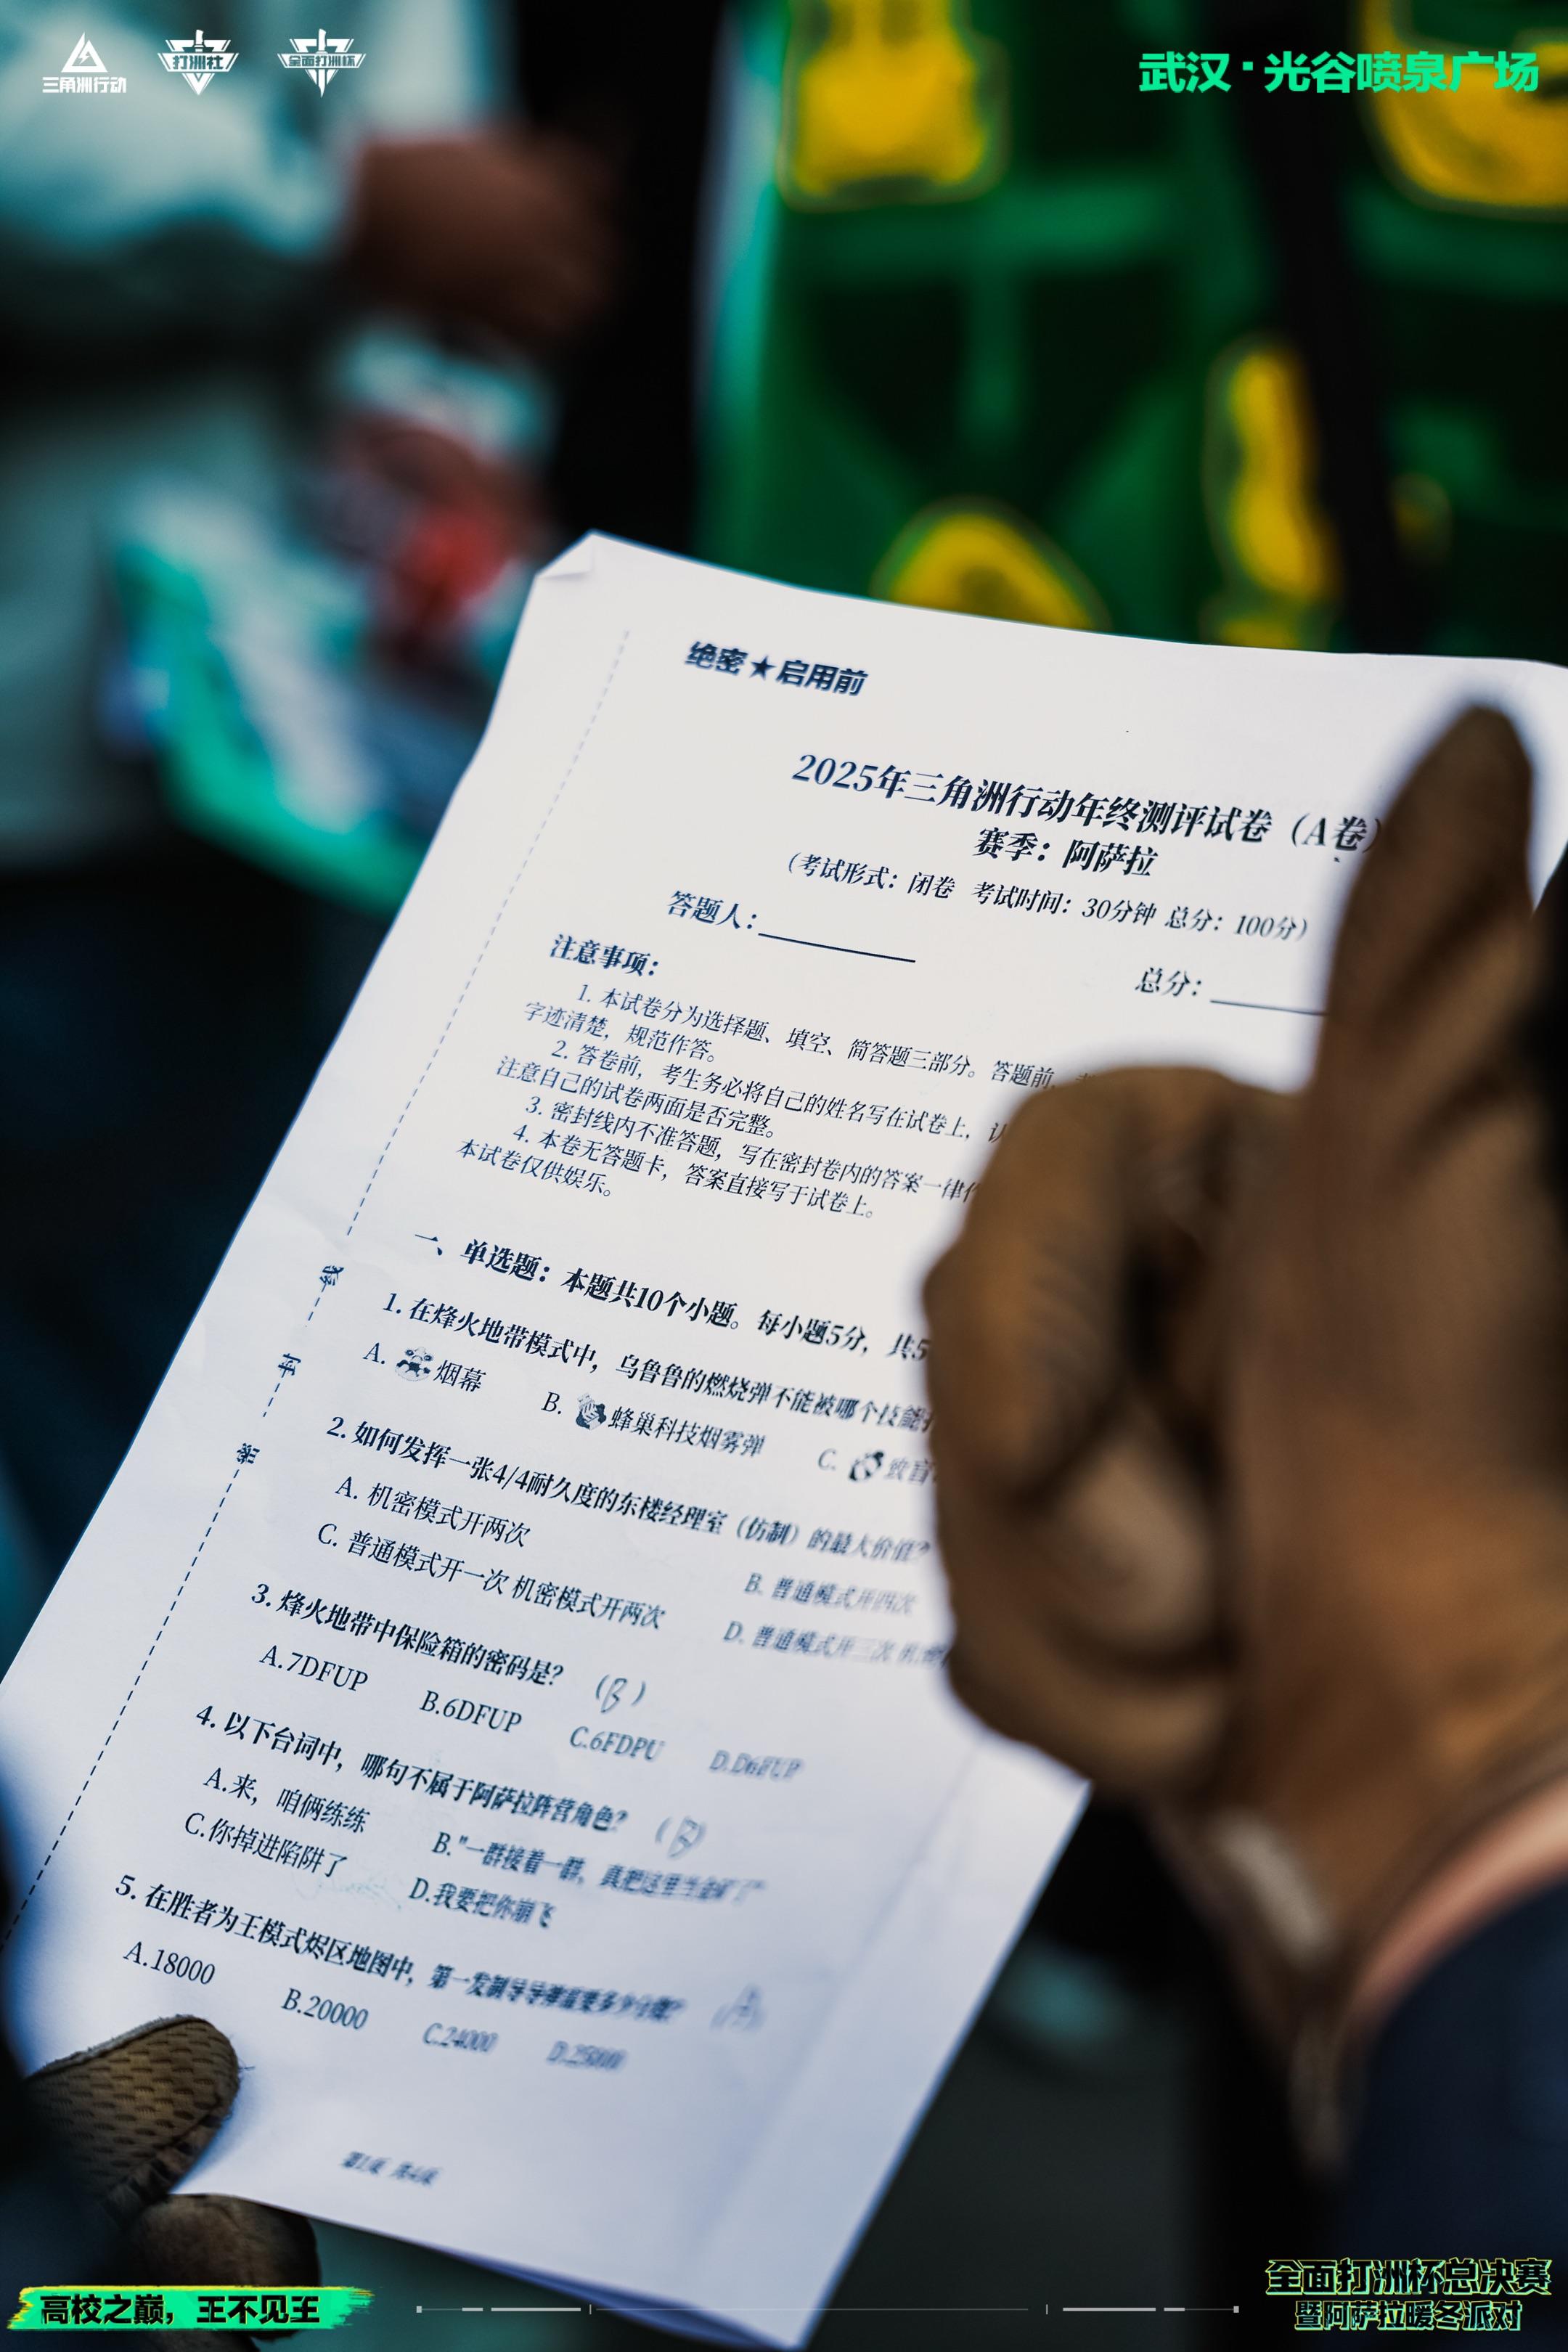 三角洲行动
打洲社
全面打洲杯
武汉·光谷喷泉广场
绝密★启用前
2025年三角洲行动年终测评试卷（A卷）
赛季：阿萨拉
（考试形式：闭卷 考试时间：30分钟 总分：100分）
答题人：
总分：
注意事项：
1. 本试卷分为选择题、填空、简答题三部分。答题前，
字迹清楚，规范作答。
2. 答卷前，考生务必将自己的姓名写在试卷上，认
注意自己的试卷两面是否完整。
3. 密封线内不准答题，写在密封卷内的答案一律作
4. 本卷无答题卡，答案直接写于试卷上。
本试卷仅供娱乐。
一、单选题：本题共10个小题。每小题5分，共5
1. 在烽火地带模式中，乌鲁鲁的燃烧弹不能被哪个技能
A. 烟幕 B. 蜂巢科技烟雾弹 C. 致盲
2. 如何发挥一张4/4耐久度的东楼经理室（仿制）的最大价值？
A. 机密模式开两次 B. 普通模式开四次
C. 普通模式开一次 机密模式开两次 D. 普通模式开三次 机密
3. 烽火地带中保险箱的密码是？ （B）
A.7DFUP B.6DFUP C.6FDPU D.D6FUP
4. 以下台词中，哪句不属于阿萨拉阵营角色？ （B）
A.来，咱俩练练 B."一群接着一群，真把这里当金矿了"
C.你掉进陷阱了 D.我要把你崩飞
5. 在胜者为王模式烬区地图中，第一发制导导弹需要多少分数？ （A）
A.18000 B.20000 C.24000 D.25000
第1页 共4页
高校之巅，王不见王
全面打洲杯总决赛
暨阿萨拉暖冬派对